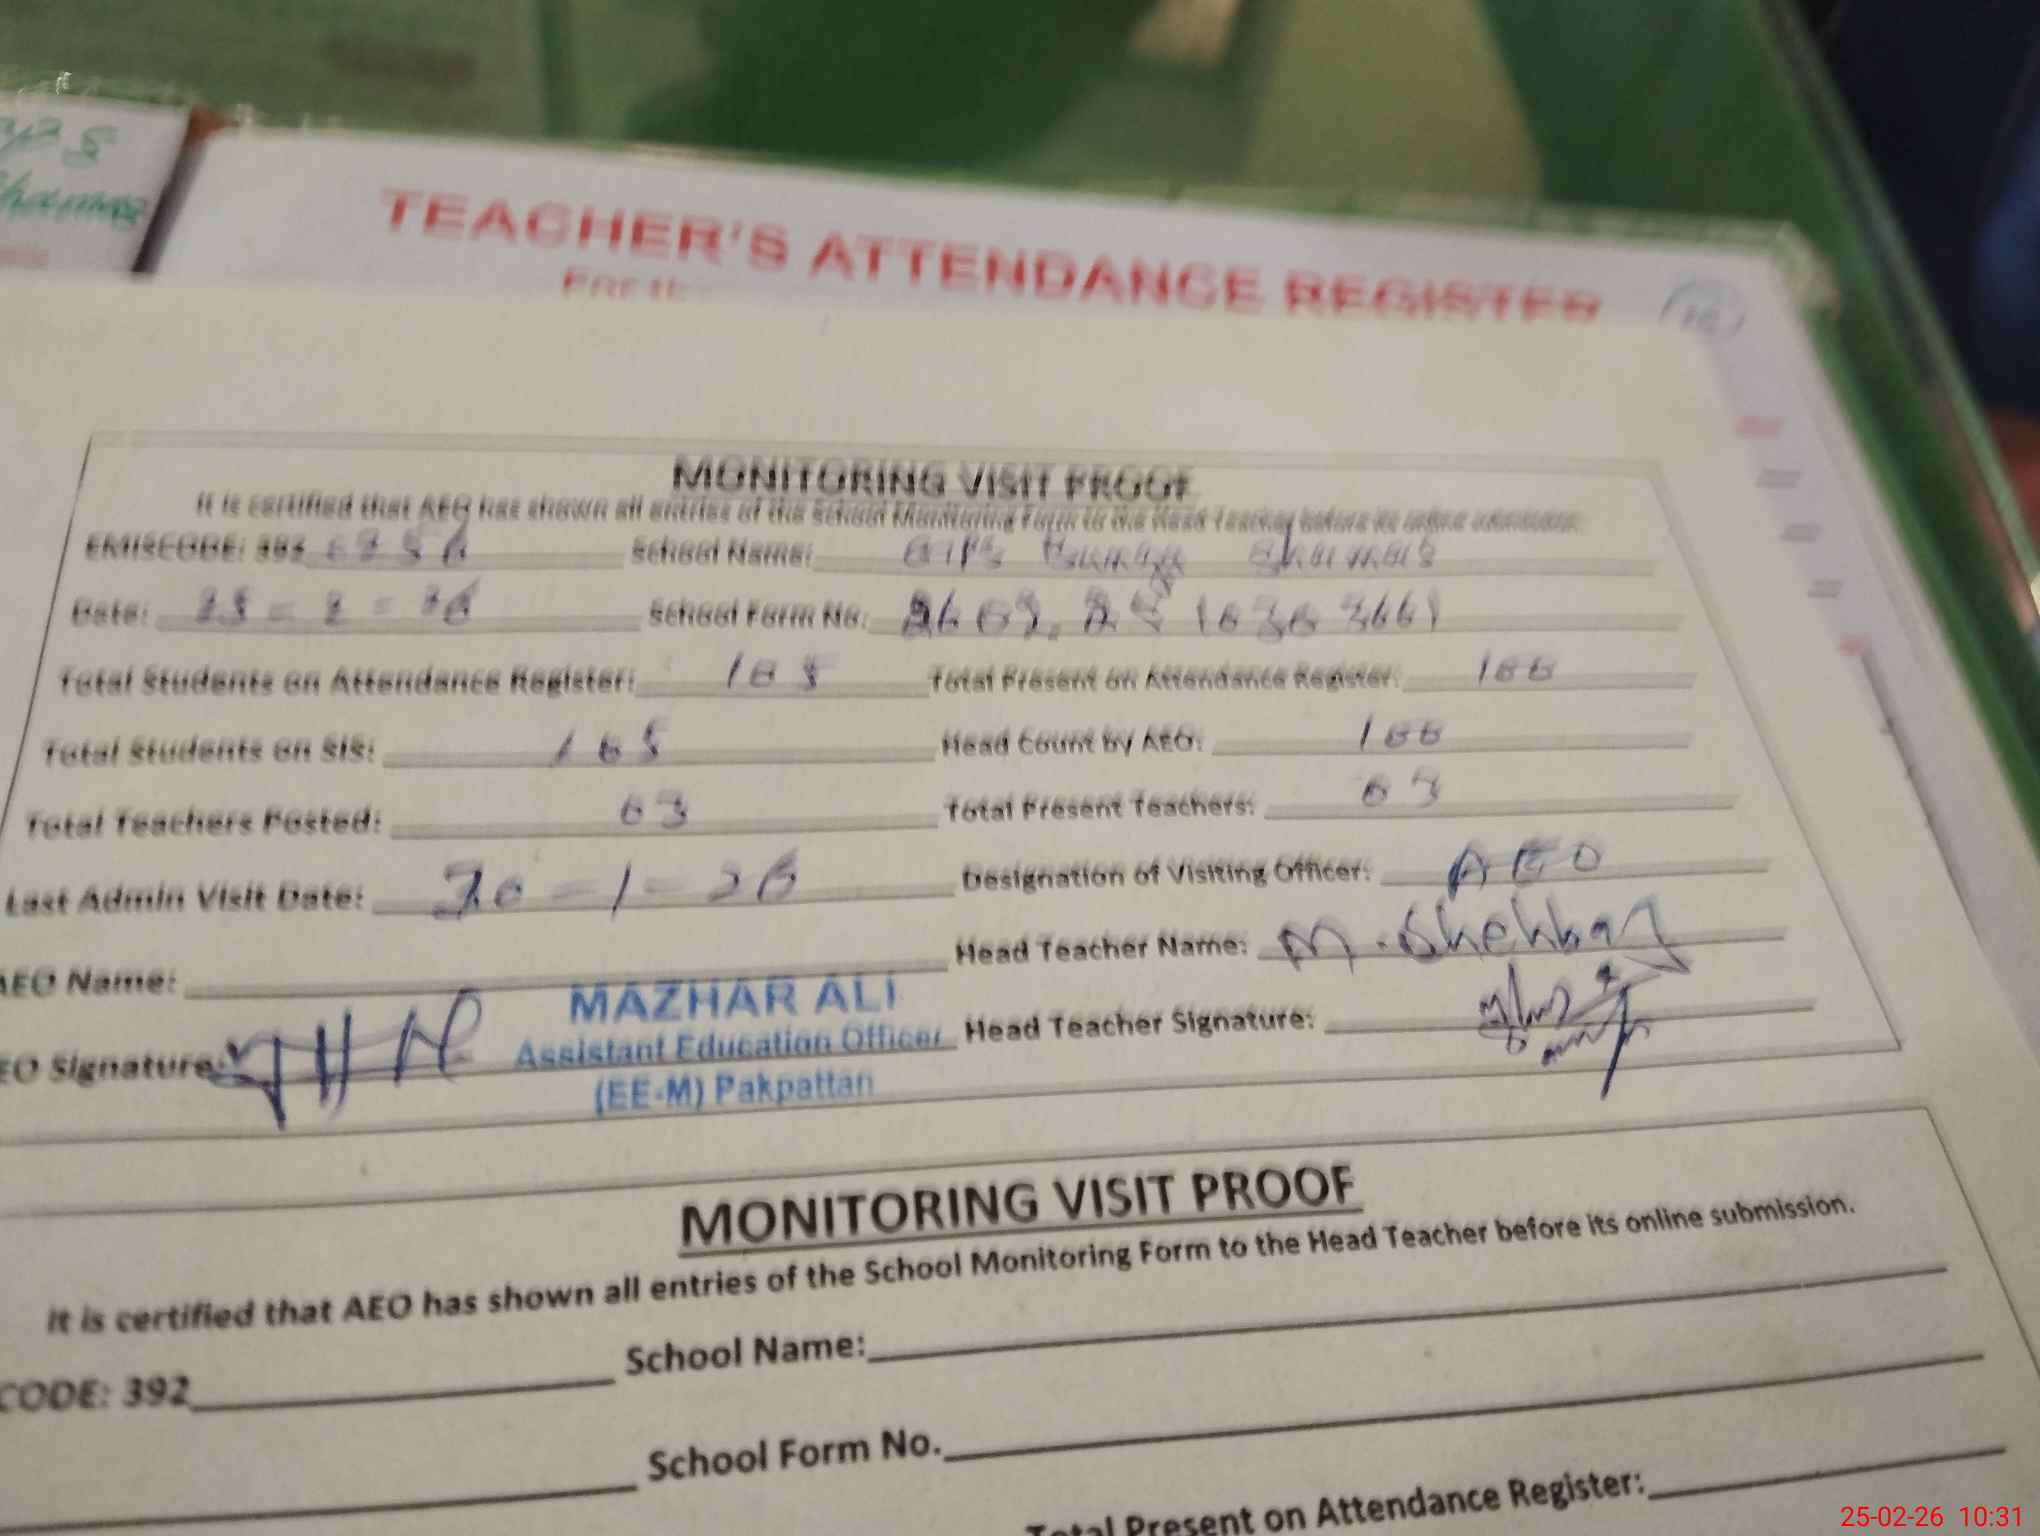 TEACHER'S ATTENDANCE REGISTER
MONITORING VISIT PROOF
It is certified that AEO has shown all entries of the School Monitoring Form to the Head Teacher before its online submission.
EMISCODE: 392 School Name: GPS
Date: 25 - 2 - 26 School Form No.
Total Students on Attendance Register: 105 Total Present on Attendance Register: 100
Total Students on SIS: 105 Head Count by AEO: 100
Total Teachers Posted: 03 Total Present Teachers: 03
Last Admin Visit Date: - 1 - 26 Designation of Visiting Officer: AEO
AEO Name: Head Teacher Name: M.
MAZHAR ALI
EO Signature: Assistant Education Officer Head Teacher Signature:
(EE-M) Pakpattan
MONITORING VISIT PROOF
It is certified that AEO has shown all entries of the School Monitoring Form to the Head Teacher before its online submission.
CODE: 392 School Name:
School Form No.
Total Present on Attendance Register:
25-02-26 10:31